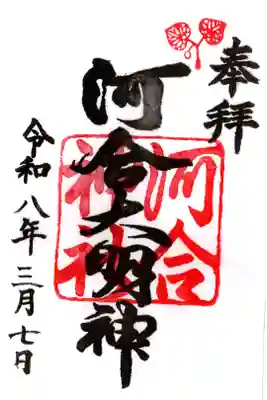 奉拝
河合大明神
河合神社
令和八年三月七日